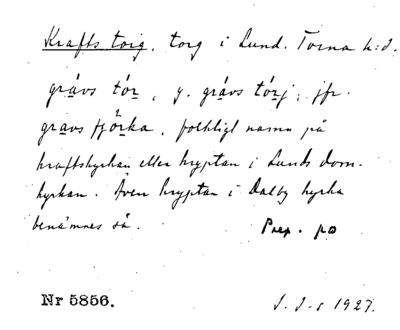 Krafts torg, torg i Lund. Torna h:d.
gràvs tór, y. gràvs tórj; jfr.
gravs fjörka, folkligt namn på
kraftskyrkan eller kryptan i Lunds dom-
kyrkan. Även kryptan i Dalby kyrka
benämnes så. Prep. på
Nr 5856. J. J-s 1927.